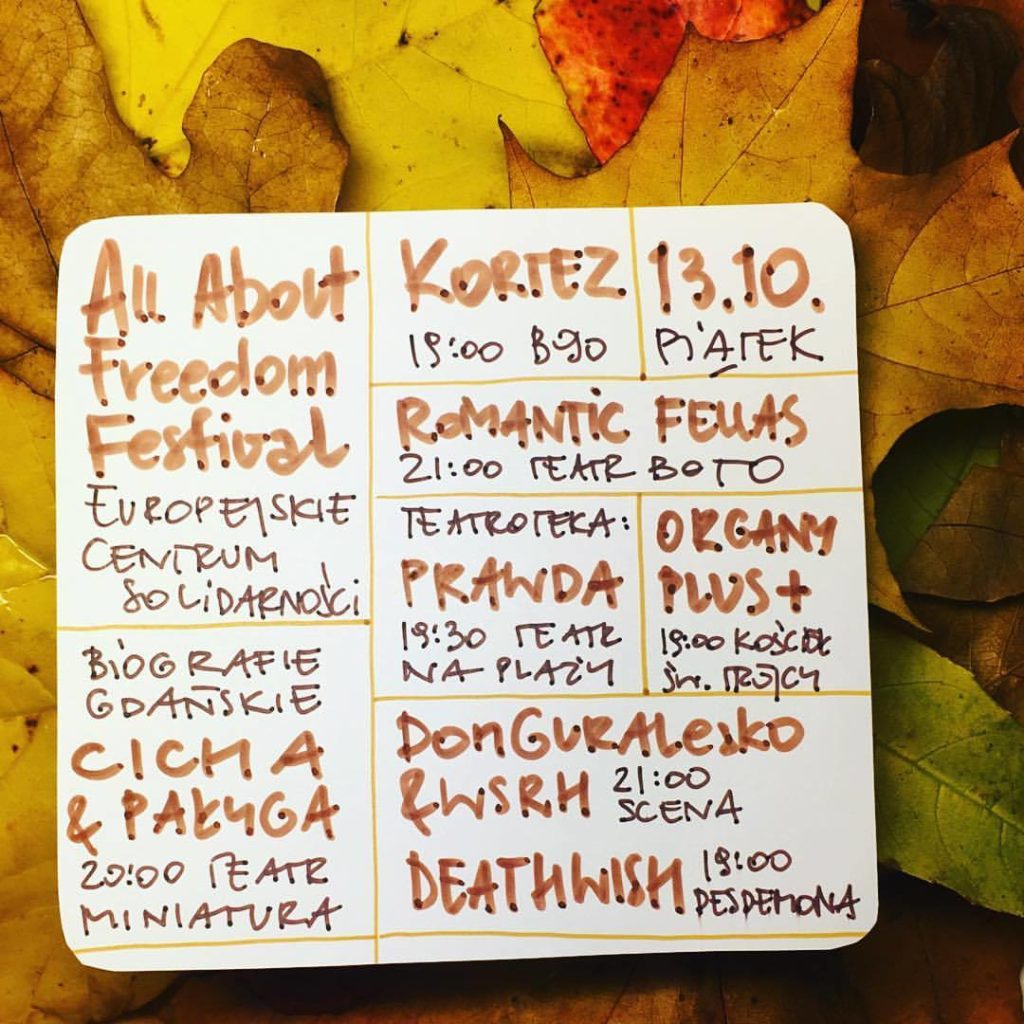 All About
Freedom
Festival
EUROPEJSKIE
CENTRUM
SOLIDARNOŚCI
BIOGRAFIE
GDAŃSKIE
CICHA
& PAŁYGA
20:00 TEATR
MINIATURA
KORTEZ
19:00 B90
13.10.
PIĄTEK
ROMANTIC FELLAS
21:00 TEATR BOTO
TEATROTEKA:
PRAWDA
19:30 TEATR
NA PLAŻY
ORGANY
PLUS+
19:00 KOŚCIÓŁ
ŚW. TRÓJCY
DonGURALesko
& WSRH 21:00
SCENA
DEATHWISH 19:00
DESDEMONA